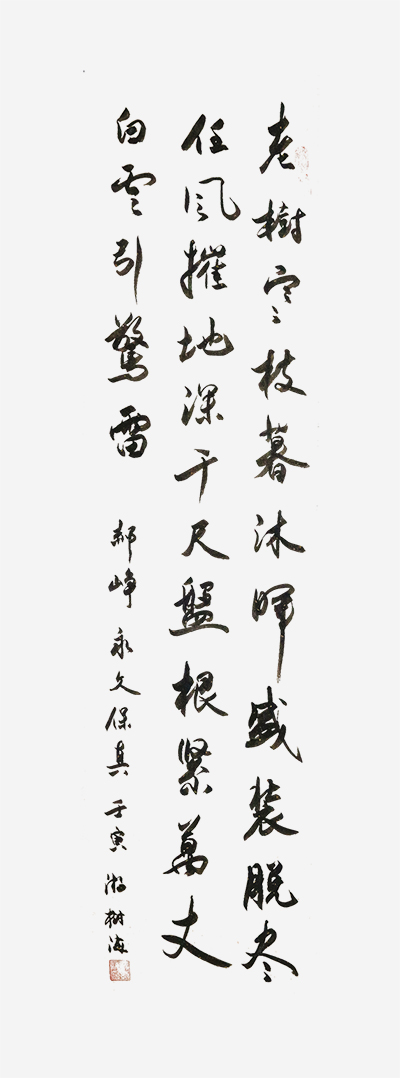 老樹寒枝暮沐晖盛装脱尽
任风摧地深千尺盤根緊萬丈
白雲引驚雷
郝峥 永久保真 壬寅 树海